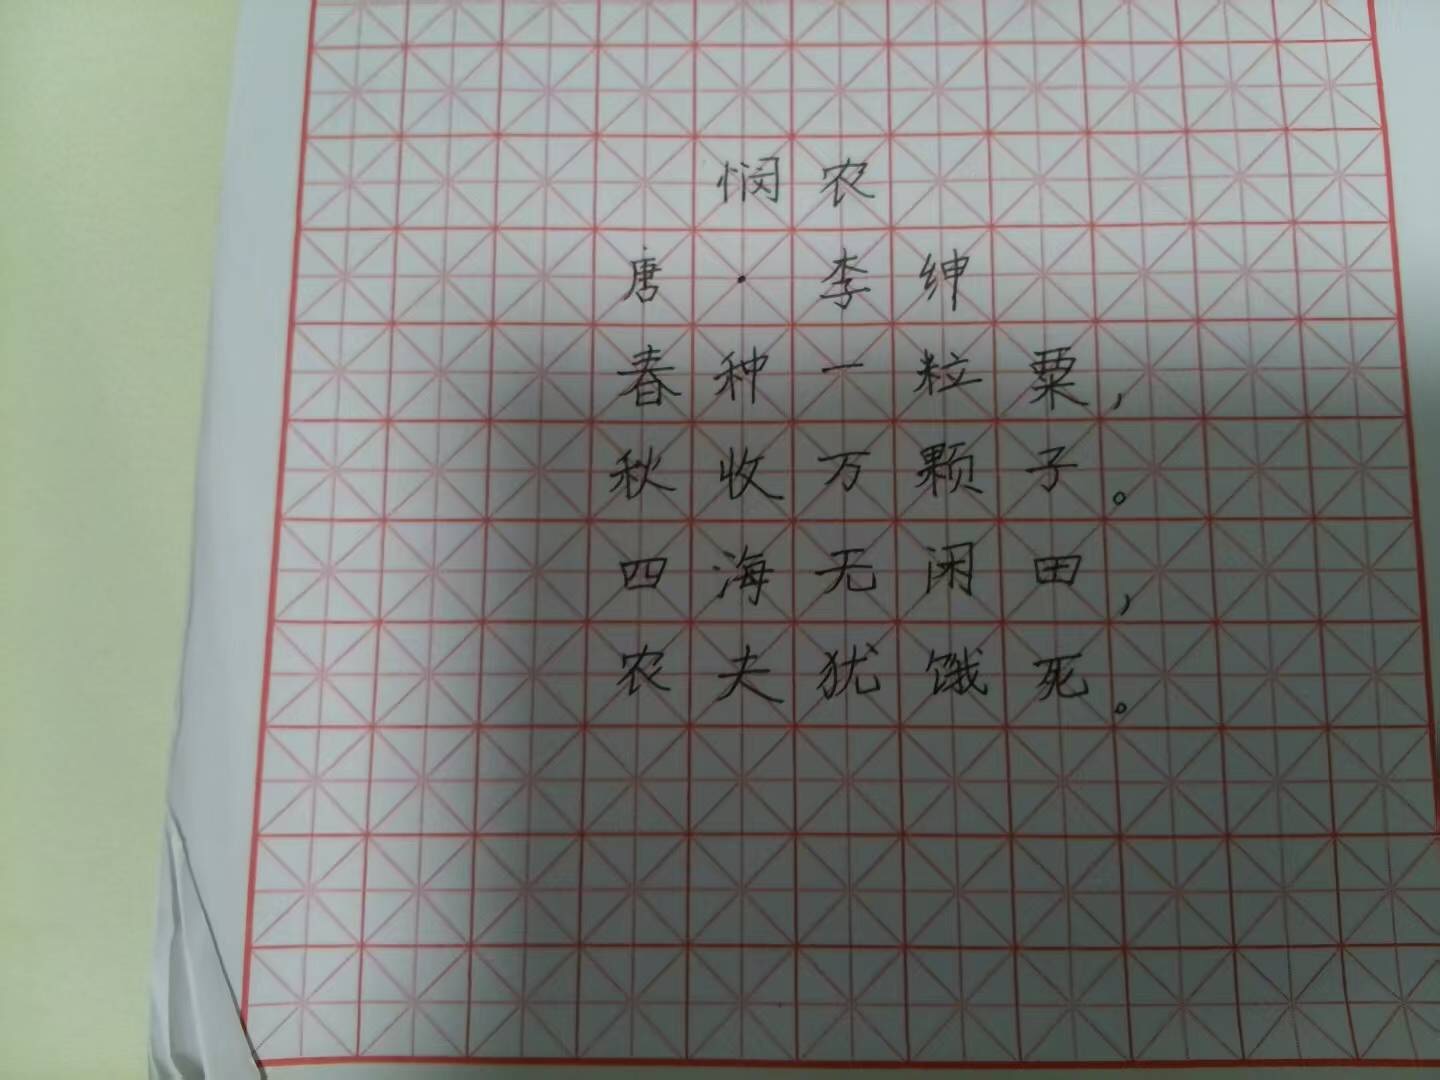 悯农
唐·李绅
春种一粒粟，
秋收万颗子。
四海无闲田，
农夫犹饿死。